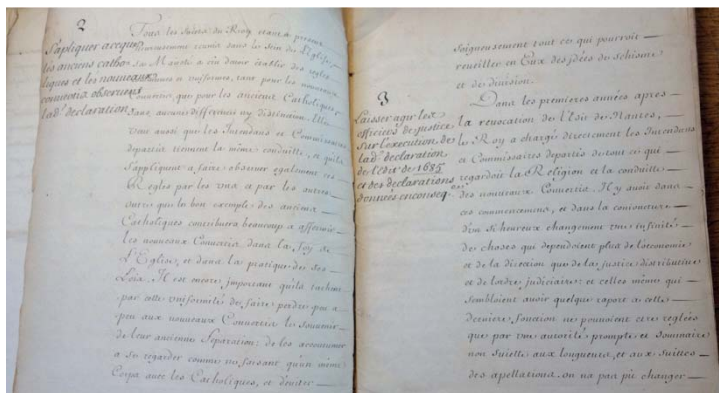 2
S'apliquer a ceque
les anciens catho-
liques et les nouveaux
convertis observent
lad. declaration
Tous les Sujets du Roy etant a present
heureusement reunis dans le Sein de l'Eglise,
Sa Majesté a cru devoir établir des regles
et uniformes, tant pour les nouveaux
Convertis, que pour les anciens Catholiques
Sans aucune difference ny distinction. Elle
veut aussi que les Intendans et Commissaires
departis tiennent la même conduitte, et qu'ils
s'appliquent a faire observer egalement ces
Regles par les uns et par les autres
outre que le bon exemple des anciens
Catholiques contribuera beaucoup a affermir
les nouveaux Convertis dans la foy de
L'Eglise, et dans la pratique de ses
Loix. Il est encore important qu'ils tachent
par cette uniformité de faire perdre peu a
peu aux nouveaux Convertis le Souvenir
de leur ancienne Separation: de les accoutumer
a se regarder comme ne faisant qu'un même
Corps avec les Catholiques, et d'eviter
soigneusement tout ce qui pourroit
reveiller en Eux des idées de schisme
et de division.
3
Laisser agir les
officiers de justice
Sur l'execution de
lad. declaration
de l'edit de 1685
et des declarations
donnees en conseq.ce
Dans les premieres années apres
la revocation de l'Edit de Nantes,
le Roy a chargé directement les Intendans
et Commissaires departis de tout ce qui
regardoit la Religion et la conduitte
des nouveaux Convertis. Il y avoit dans
ces commencemens, et dans la conjoncture
d'un Si heureux changement une infinité
de choses qui dependoient plus de l'oeconomie
et de la direction que de la justice distributive
et de l'ordre judiciaire: et celles même qui
sembloient avoir quelque raport a cette
derniere fonction ne pouvoient etre reglées
que par une autorité prompte et Sommaire
non Sujette aux longueurs, et aux Suittes
des apellations. on n'a pas pû changer